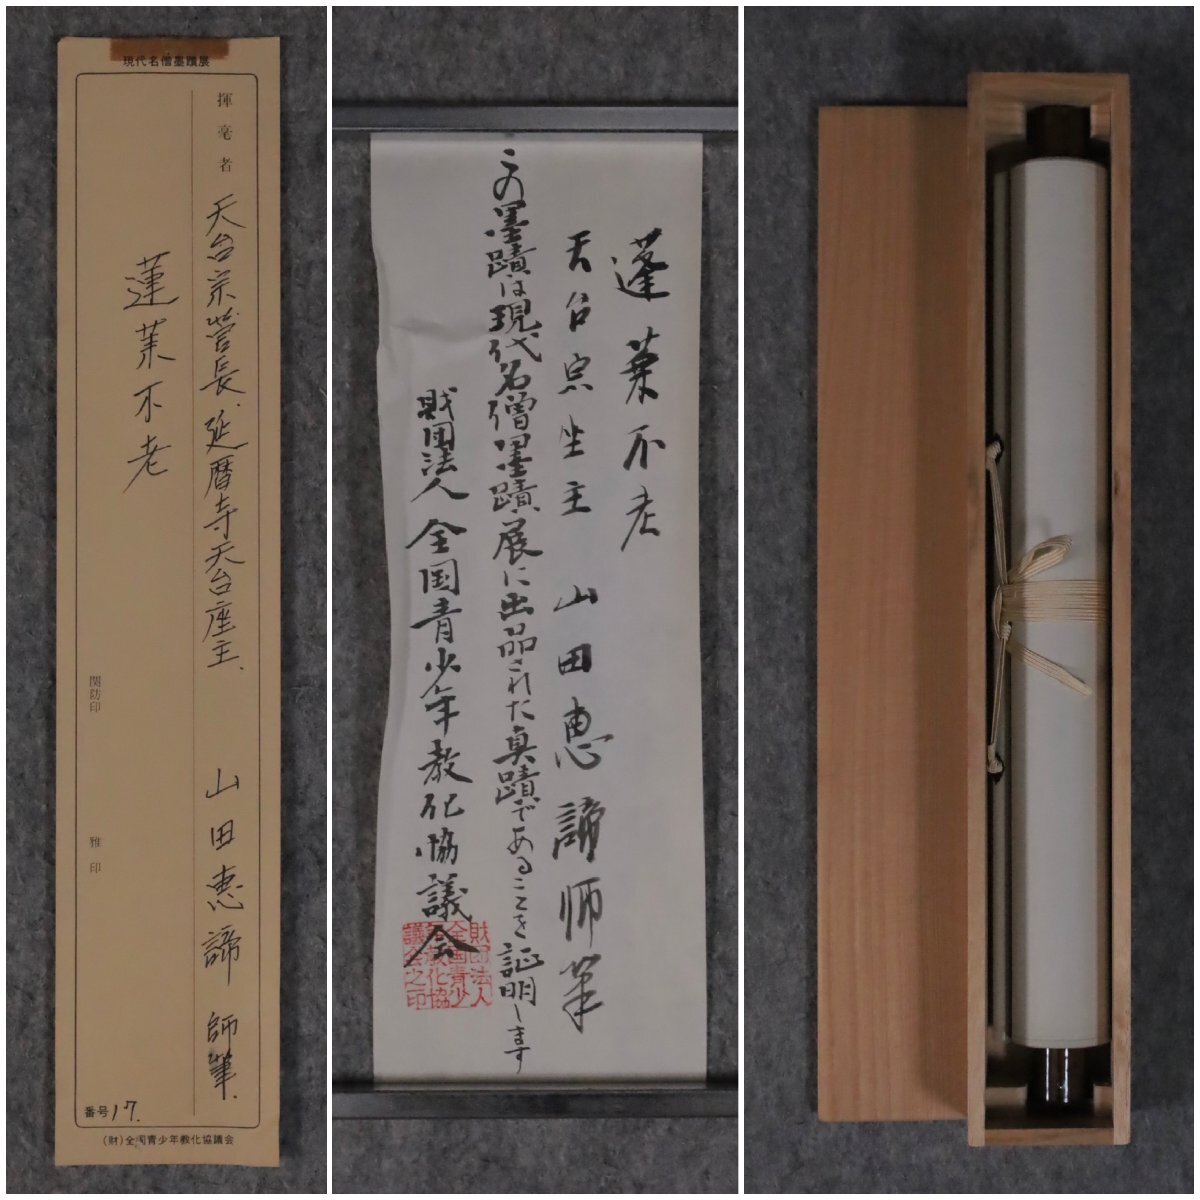 現代名僧墨蹟展
揮毫者
天台宗管長、延暦寺天台座主、 山田恵諦 師筆.
蓬莱不老
関防印
雅印
番号17.
(財)全国青少年教化協議会
蓬莱不老
天台宗座主 山田恵諦師筆
この墨蹟は現代名僧墨蹟展に出品された真蹟であることを証明します
財団法人 全国青少年教化協議会
財団法人全国青少年教化協議会之印